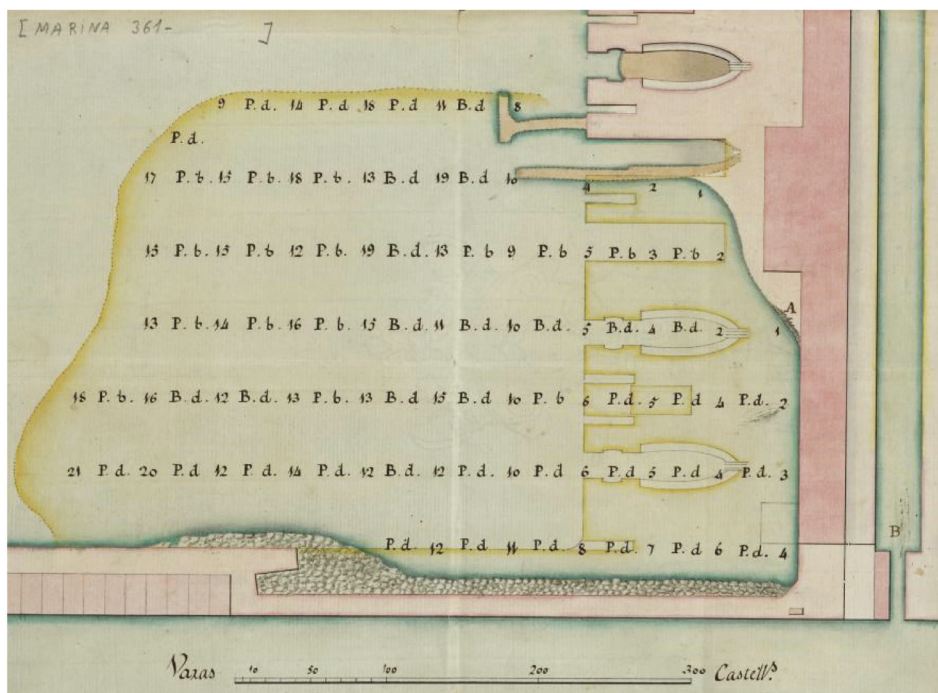 [MARINA 361- ]
9 P.d. 14 P.d 18 P.d 11 B.d 8
P.d.
17 P.b. 15 P.b. 18 P.b. 13 B.d 19 B.d 10
4 2 1
15 P.b. 15 P.b 12 P.b. 19 B.d. 13 P.b 9 P.b 5 P.b 3 P.b 2
A
13 P.b. 14 P.b. 16 P.b. 15 B.d. 11 B.d. 10 B.d. 5 B.d. 4 B.d. 2 1
18 P.b. 16 B.d. 12 B.d. 13 P.b. 13 B.d 15 B.d 10 P.b 6 P.d. 5 P.d 4 P.d. 2
21 P.d. 20 P.d 12 P.d. 14 P.d. 12 B.d. 12 P.d. 10 P.d 6 P.d 5 P.d 4 P.d. 3
B
P.d. 12 P.d 11 P.d. 8 P.d. 7 P.d 6 P.d. 4
Varas 10 50 100 200 300 Castells.